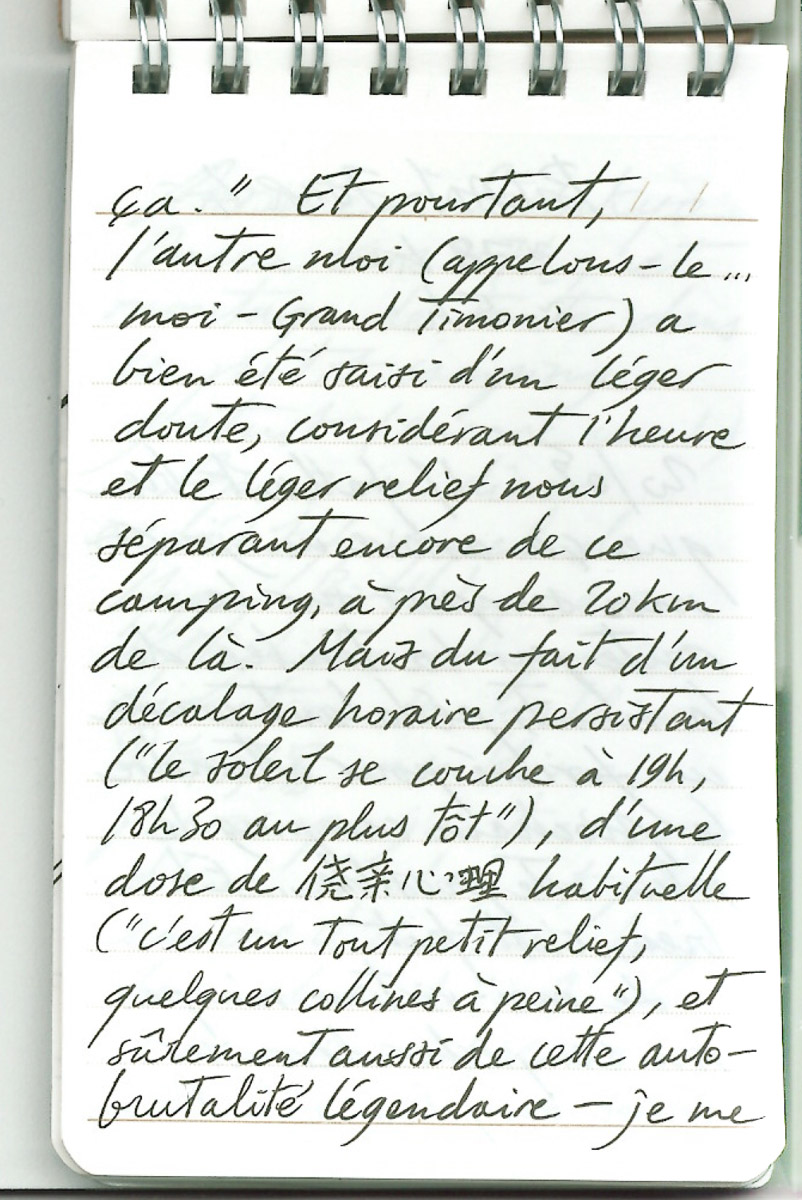 ça." Et pourtant,
l'autre moi (appelons-le...
moi-Grand Timonier) a
bien été saisi d'un léger
doute, considérant l'heure
et le léger relief nous
séparant encore de ce
camping, à près de 20km
de là. Mais du fait d'un
décalage horaire persistant
("le soleil se couche à 19h,
18h30 au plus tôt"), d'une
dose de 侥亲心理 habituelle
("c'est un tout petit relief,
quelques collines à peine"), et
sûrement aussi de cette auto-
brutalité légendaire – je me